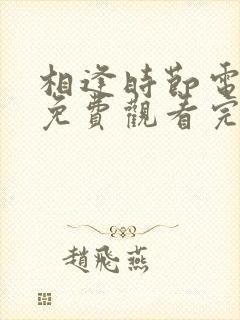 相逢時節電
免費觀看完
趙飛燕